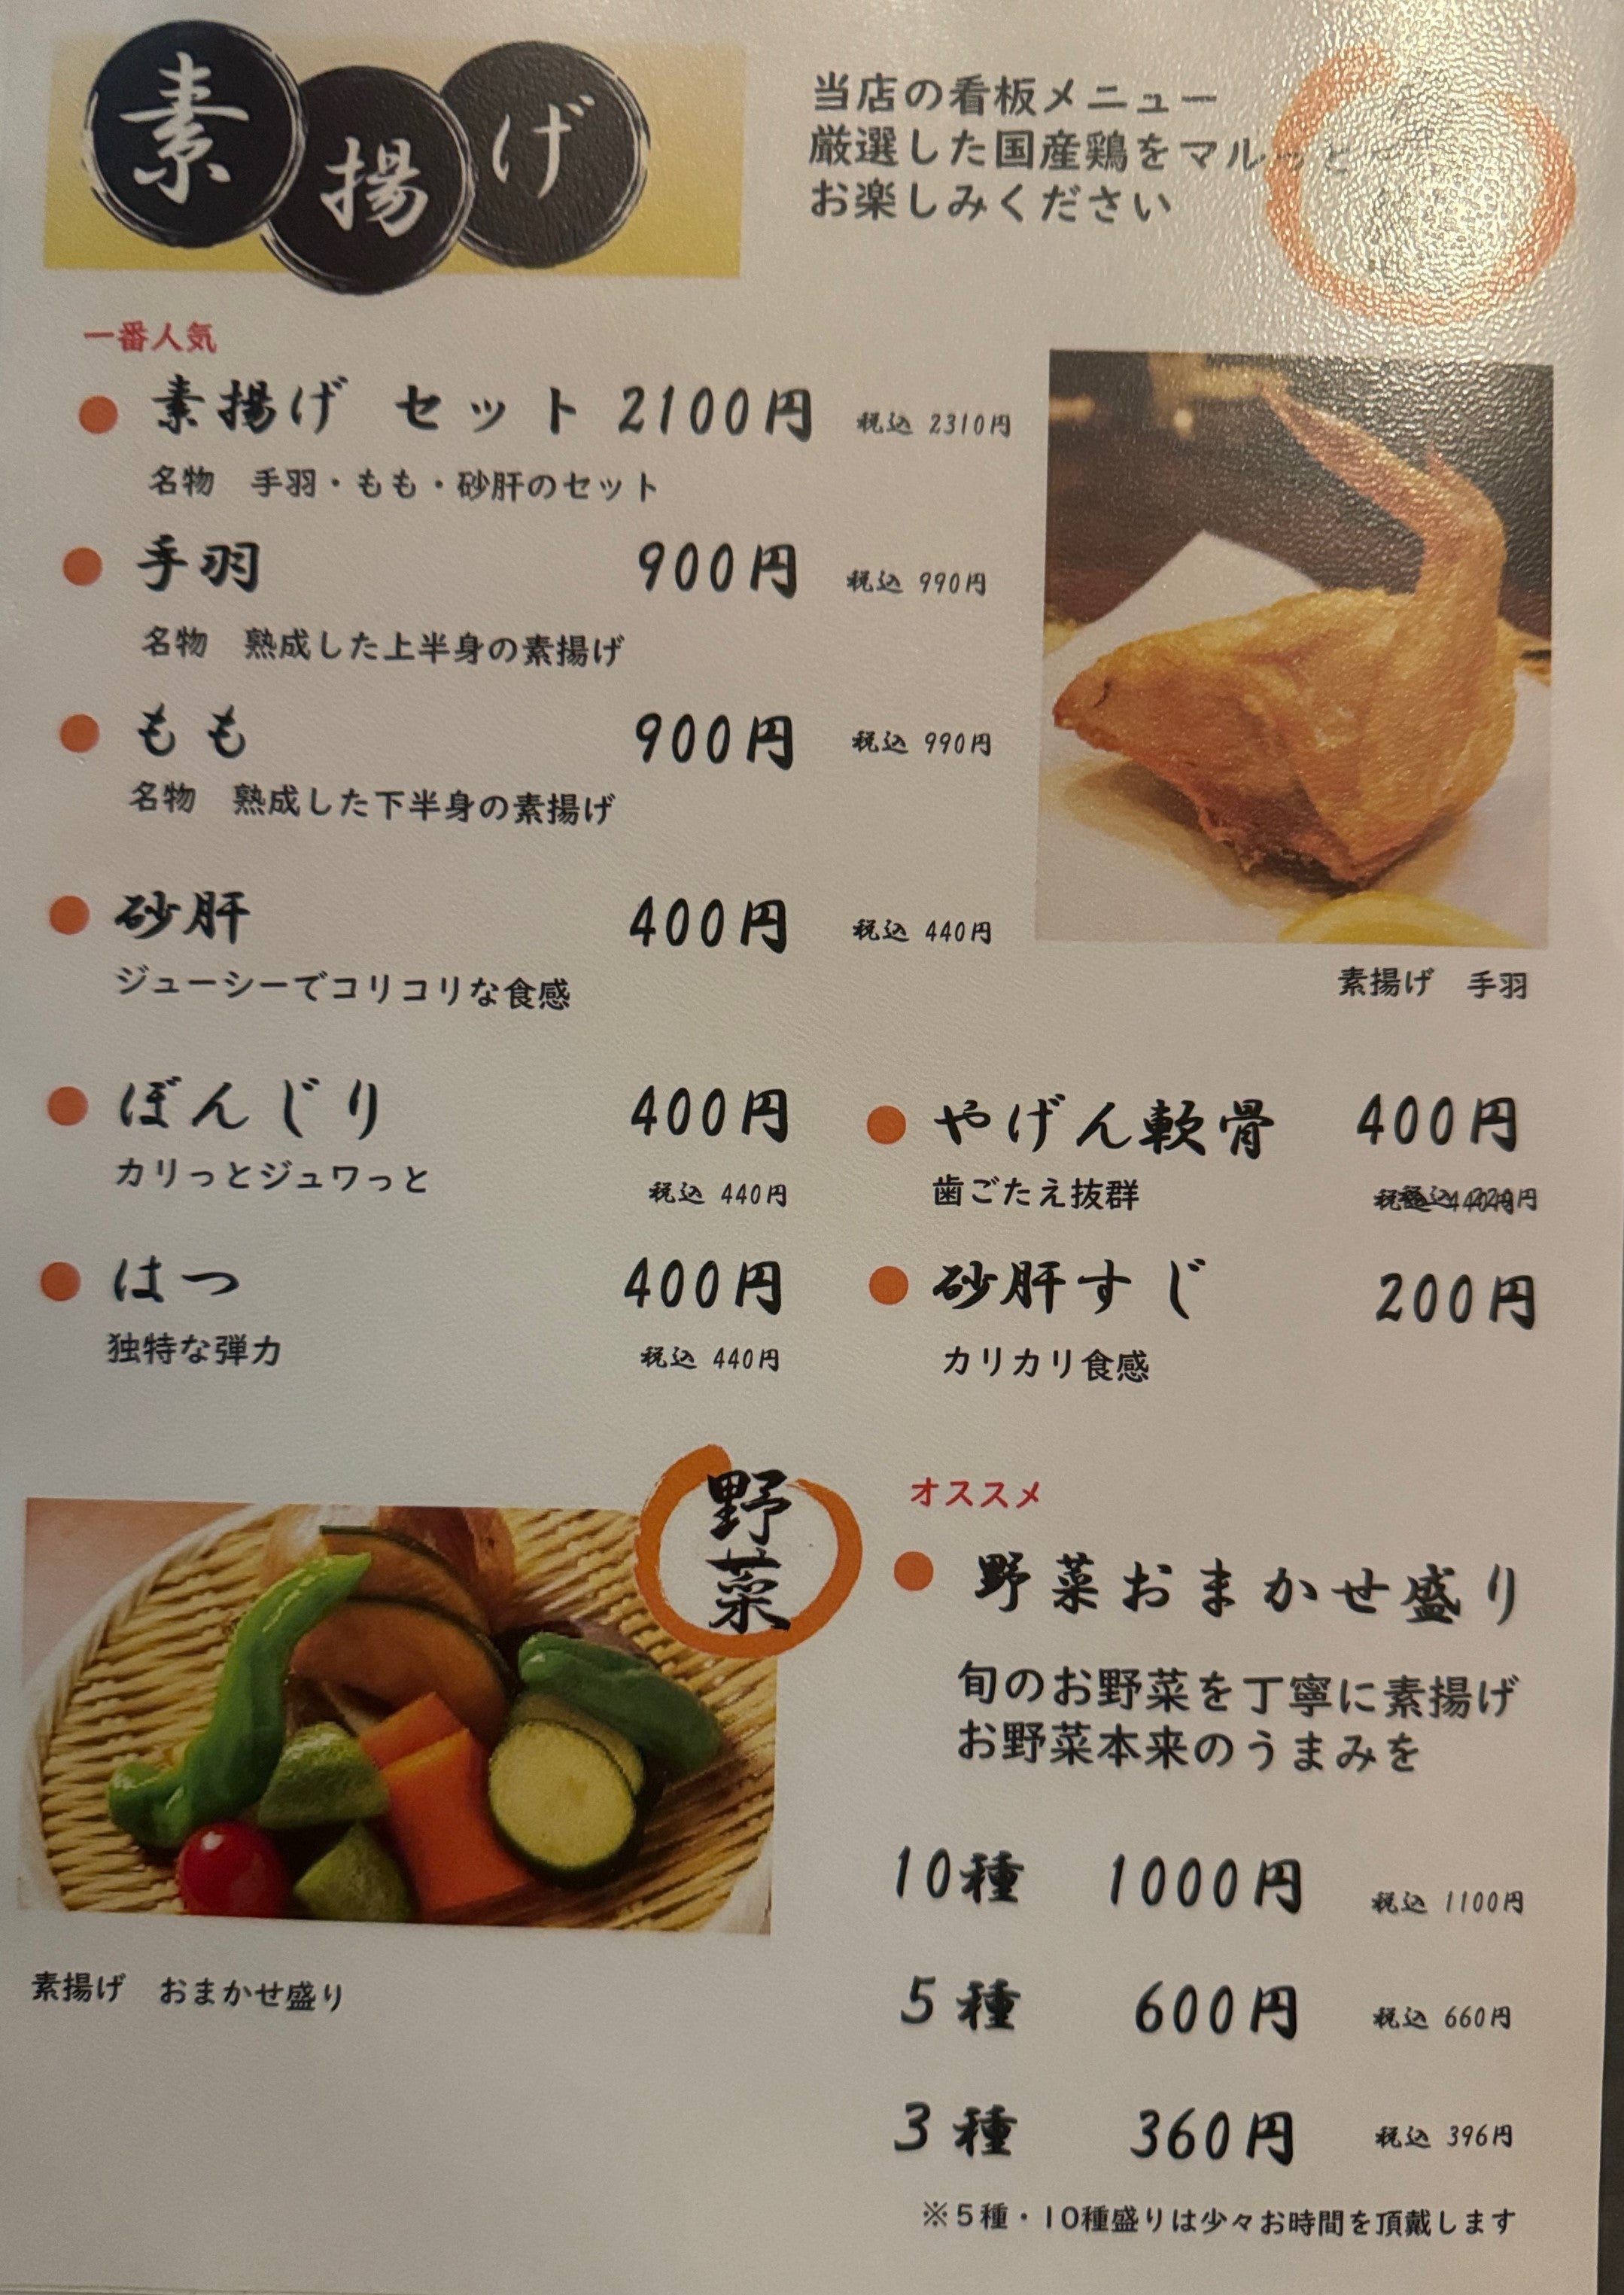 素揚げ
当店の看板メニュー
厳選した国産鶏をマルッと
お楽しみください
一番人気
素揚げ セット 2100円 税込 2310円
名物 手羽・もも・砂肝のセット
手羽 900円 税込 990円
名物 熟成した上半身の素揚げ
もも 900円 税込 990円
名物 熟成した下半身の素揚げ
砂肝 400円 税込 440円
ジューシーでコリコリな食感
素揚げ 手羽
ぼんじり 400円
カリっとジュワっと 税込 440円
やげん軟骨 400円
歯ごたえ抜群
はつ 400円
独特な弾力 税込 440円
砂肝すじ 200円
カリカリ食感
野菜
オススメ
野菜おまかせ盛り
旬のお野菜を丁寧に素揚げ
お野菜本来のうまみを
10種 1000円 税込 1100円
素揚げ おまかせ盛り
5種 600円 税込 660円
3種 360円 税込 396円
※5種・10種盛りは少々お時間を頂戴します